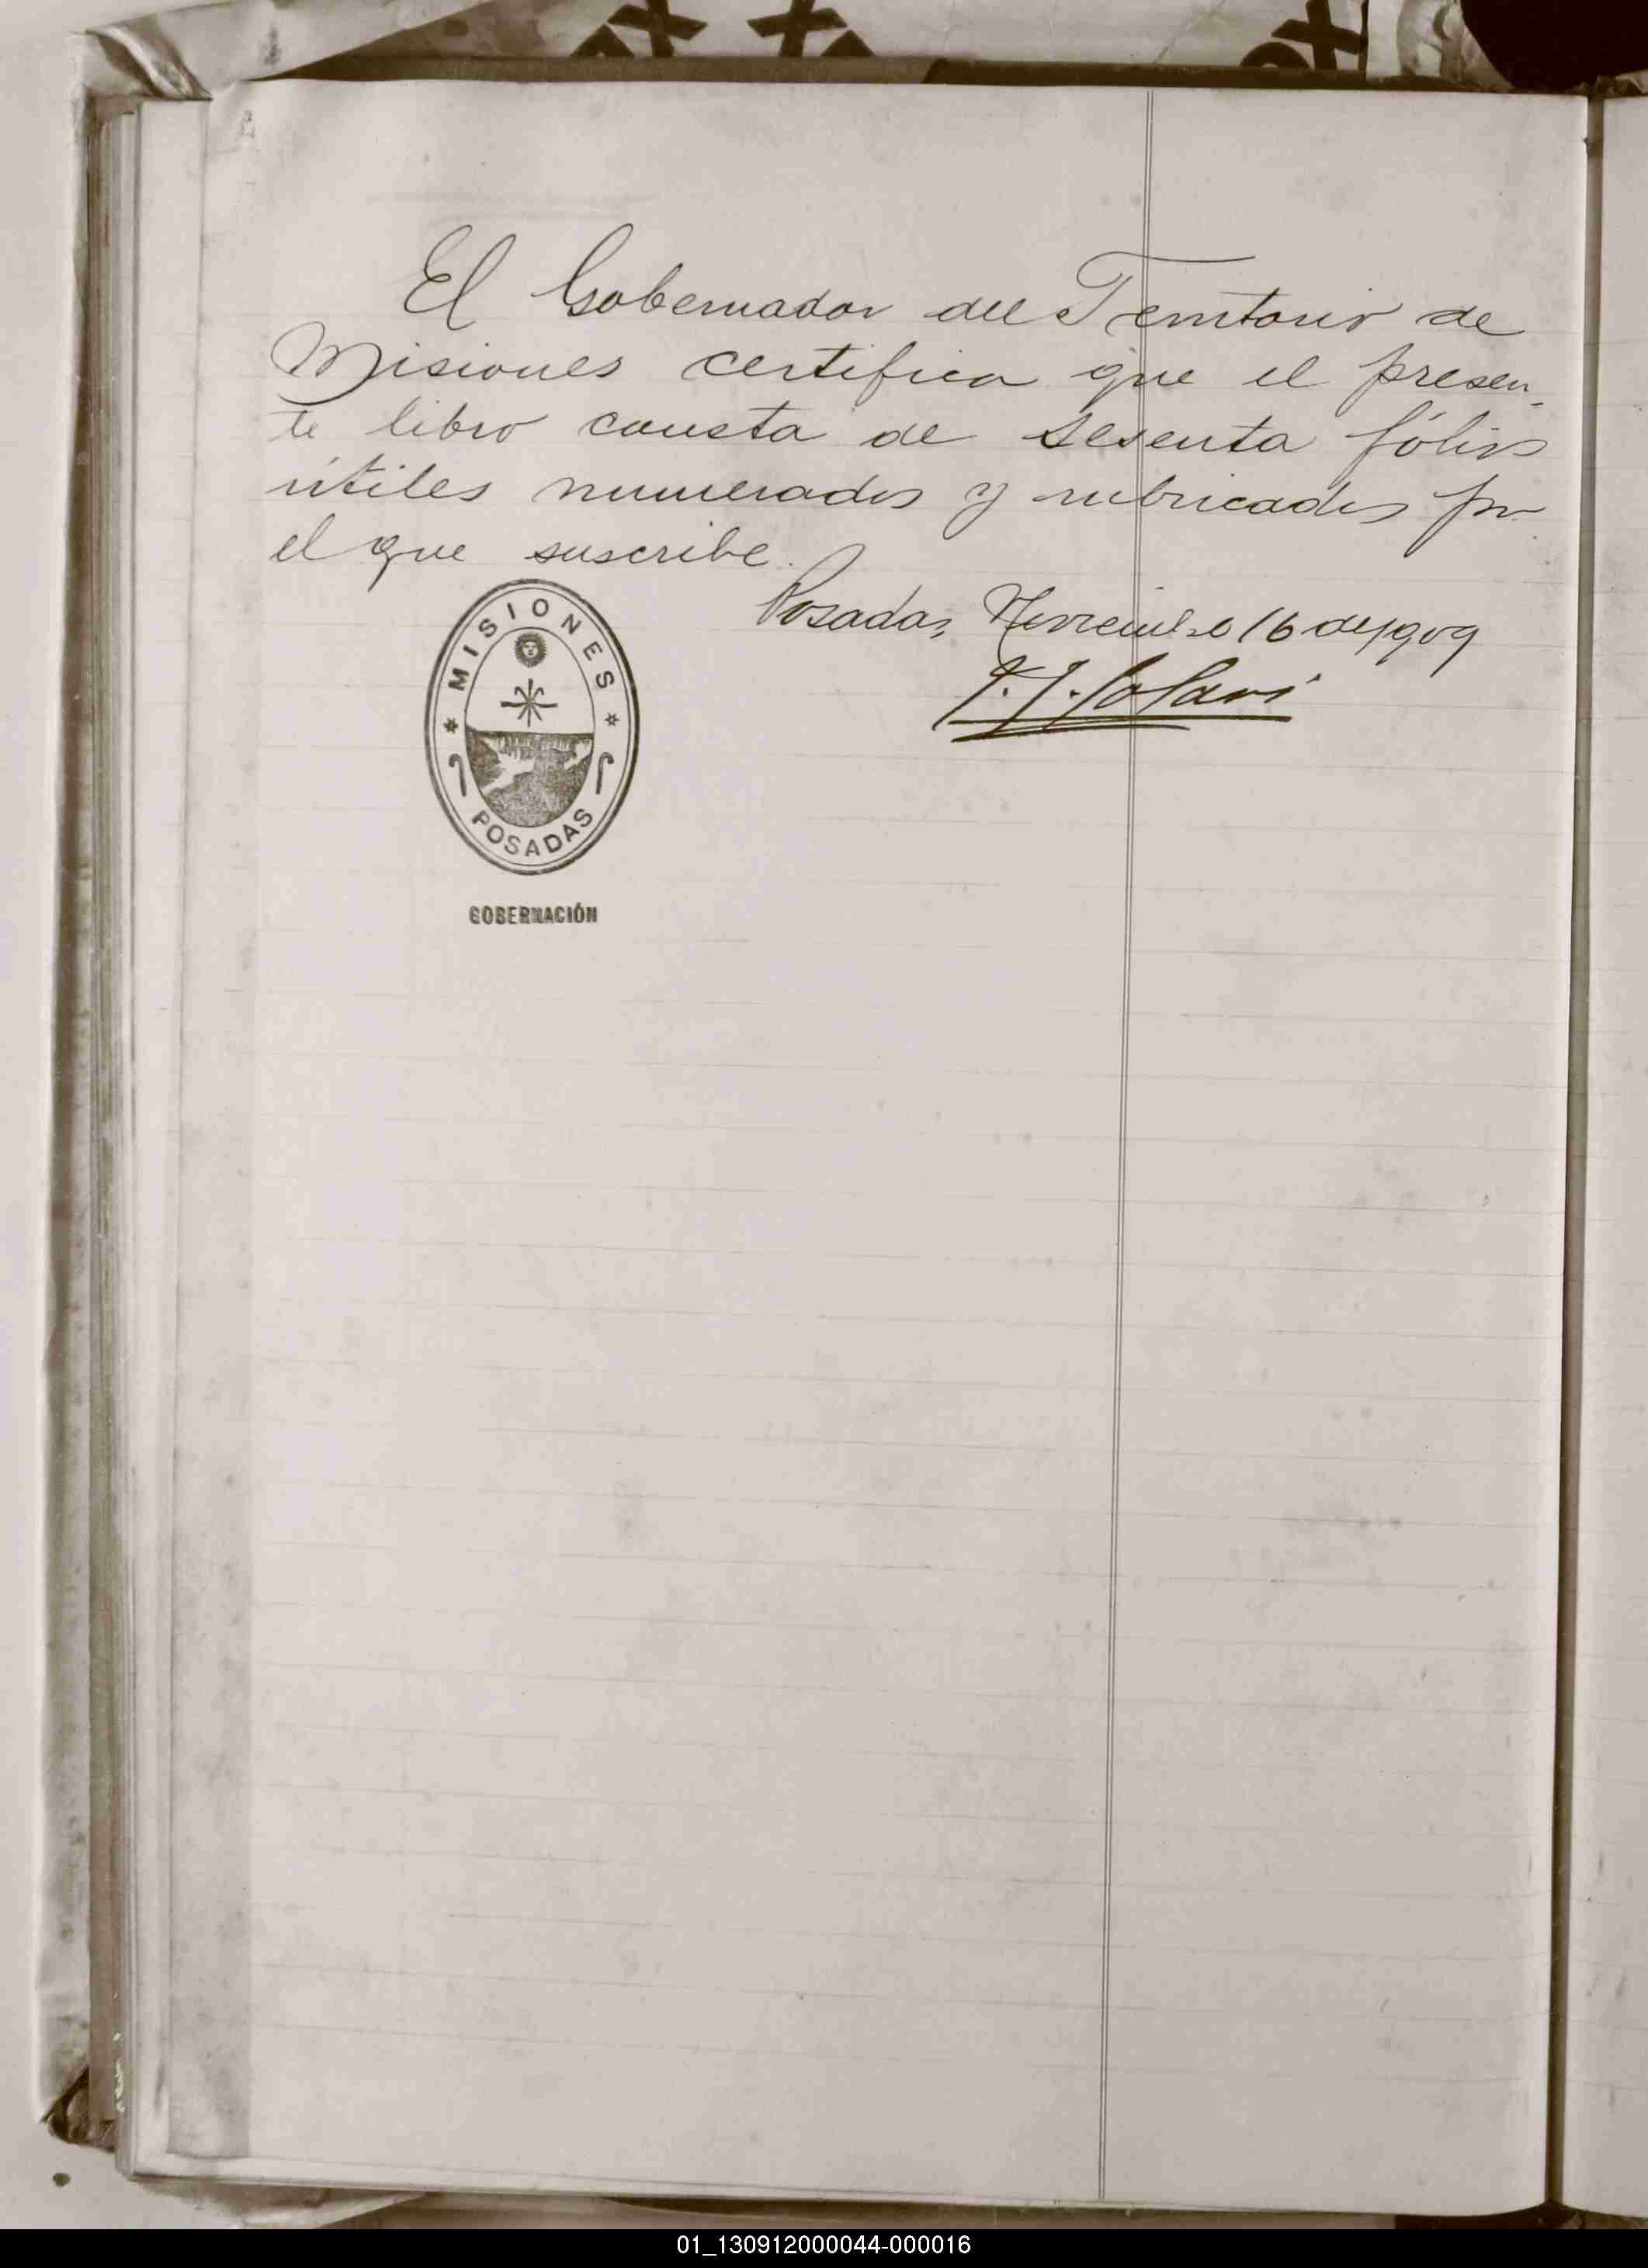 El Gobernador del Territorio de
Misiones certifica que el presen-
te libro consta de sesenta fólios
útiles numerados y rubricados por
el que suscribe.
Posadas, Noviembre 16 de 1909
MISIONES
POSADAS
GOBERNACIÓN
01_130912000044-000016